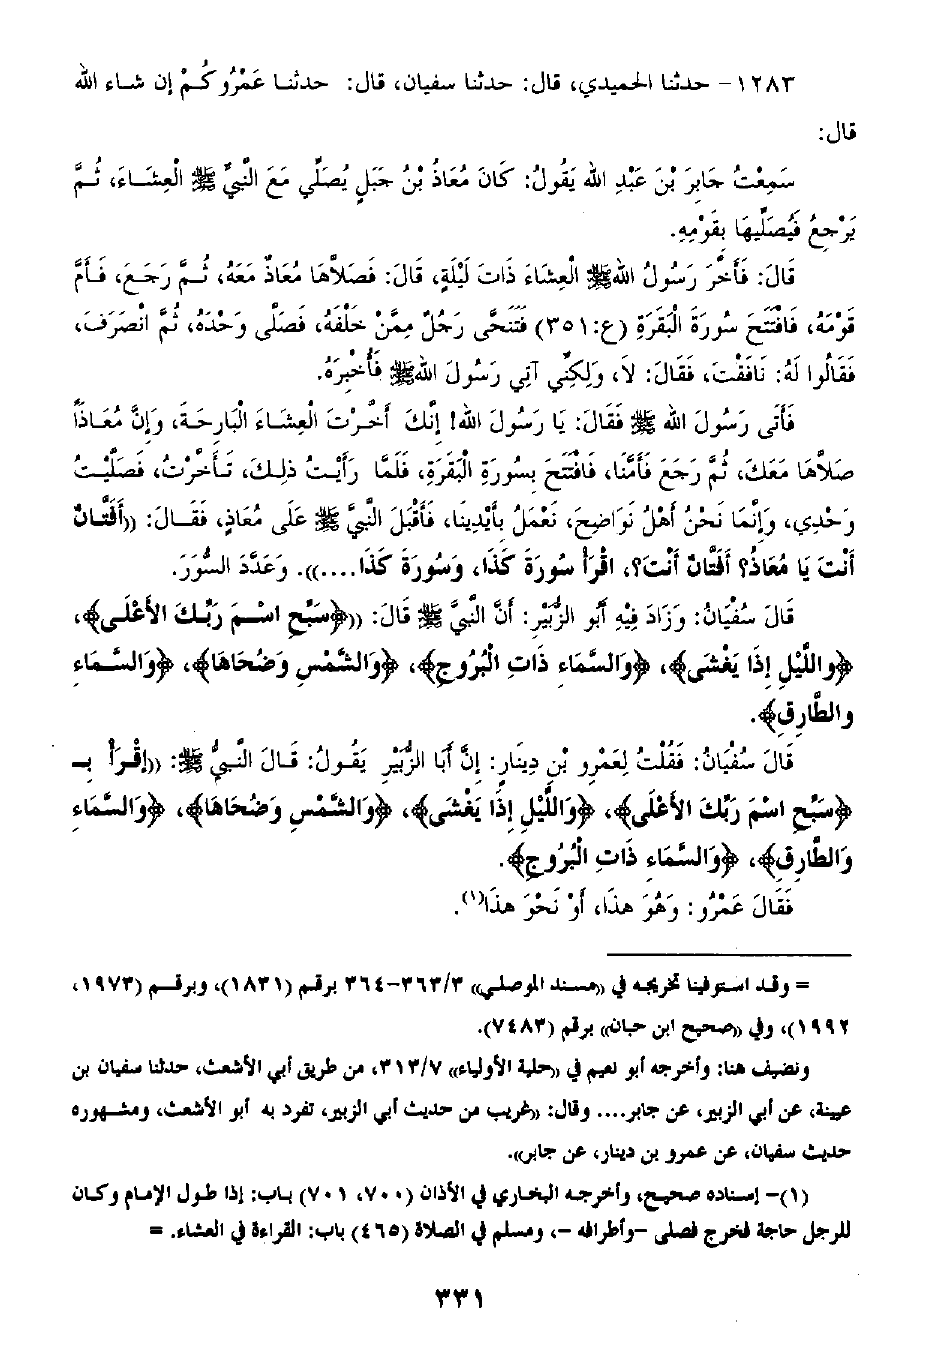 ١٢٨٣- حدثنا الحميدي، قال: حدثنا سفيان، قال: حدثنا عَمْرُوكُمْ إن شاء الله
قال:
سَمِعْتُ جَابِرَ بْنَ عَبْدِ الله يَقُولُ: كَانَ مُعَاذُ بْنُ جَبَلٍ يُصَلِّي مَعَ النَّبِيِّ ﷺ الْعِشَاءَ، ثُمَّ
يَرْجِعُ فَيُصَلِّيهَا بِقَوْمِهِ.
قَالَ: فَأَخَّرَ رَسُولُ اللهِ ﷺ الْعِشَاءَ ذَاتَ لَيْلَةٍ، قَالَ: فَصَلاَّهَا مُعَاذٌ مَعَهُ، ثُمَّ رَجَعَ، فَأَمَّ
قَوْمَهُ، فَافْتَتَحَ سُورَةَ الْبَقَرَةِ (ع:٣٥١) فَتَنَحَّى رَجُلٌ مِمَّنْ خَلْفَهُ، فَصَلَّى وَحْدَهُ، ثُمَّ انْصَرَفَ،
فَقَالُوا لَهُ: نَافَقْتَ، فَقَالَ: لاَ، وَلِكِنِّي آتِي رَسُولَ اللهِ ﷺ فَأُخْبِرَهُ.
فَأَتَى رَسُولَ الله ﷺ فَقَالَ: يَا رَسُولَ الله! إنَّكَ أَخَّرْتَ الْعِشَاءَ الْبَارِحَةَ، وَإنَّ مُعَاذاً
صَلاَّهَا مَعَكَ، ثُمَّ رَجَعَ فَأَمَّنَا، فَافْتَتَحَ بِسُورَةِ الْبَقَرَةِ، فَلَمَّا رَأَيْتُ ذلِكَ، تَأَخَّرْتُ، فَصَلَّيْتُ
وَحْدِي، وَإنَّمَا نَحْنُ أَهْلُ نَوَاضِحَ، نَعْمَلُ بِأَيْدِينَا، فَأَقْبَلَ النَّبِيُّ ﷺ عَلَى مُعَاذٍ، فَقَالَ: ((أَفَتَّانٌ
أَنْتَ يَا مُعَاذُ؟ أَفَتَّان أَنْتَ؟، اقْرَأْ سُورَةَ كَذَا، وَسُورَةَ كَذَا....)). وَعَدَّدَ السُّوَرَ.
قَالَ سُفْيَانُ: وَزَادَ فِيهِ أَبُو الزُّبَيْرِ: أَنَّ النَّبِيَّ ﷺ قَالَ: ((﴿سَبِّحِ اسْمَ رَبِّكَ الأَعْلَى﴾،
﴿واللَّيْلِ إذَا يَغْشَى﴾، ﴿وَالسَّمَاءِ ذَاتِ الْبُرُوجِ﴾، ﴿وَالشَّمْسِ وَضُحَاهَا﴾، ﴿وَالسَّمَاءِ
والطَّارِقِ﴾.
قَالَ سُفْيَانُ: فَقُلْتُ لِعَمْرِو بْنِ دِينَارٍ: إنَّ أَبَا الزُّبَيْرِ يَقُولُ: قَالَ النَّبِيُّ ﷺ: ((إقْرَأْ بـ
﴿سَبِّحِ اسْمَ رَبِّكَ الأَعْلَى﴾، ﴿وَاللَّيْلِ إذَا يَغْشَى﴾، ﴿وَالشَّمْسِ وَضُحَاهَا﴾، ﴿وَالسَّمَاءِ
وَالطَّارِقِ﴾، ﴿وَالسَّمَاءِ ذَاتِ الْبُرُوجِ﴾.
فَقَالَ عَمْرُو: وَهُوَ هذَا، أَوْ نَحْوَ هذَا(١).
= وقد استوفينا تخريجه في ((مسند الموصلي)) ٣٦٣/٣-٣٦٤ برقم (١٨٣١)، وبرقم (١٩٧٣،
١٩٩٢)، وفي ((صحيح ابن حبان)) برقم (٧٤٨٣).
ونضيف هنا: وأخرجه أبو نعيم في ((حلية الأولياء)) ٣١٣/٧، من طريق أبي الأشعث، حدثنا سفيان بن
عيينة، عن أبي الزبير، عن جابر.... وقال: ((غريب من حديث أبي الزبير، تفرد به أبو الأشعث، ومشهوره
حديث سفيان، عن عمرو بن دينار، عن جابر)).
(١)- إسناده صحيح، وأخرجه البخاري في الأذان (٧٠٠، ٧٠١) باب: إذا طول الإمام وكان
للرجل حاجة فخرج فصلى -وأطرافه -، ومسلم في الصلاة (٤٦٥) باب: القراءة في العشاء. =
٣٣١